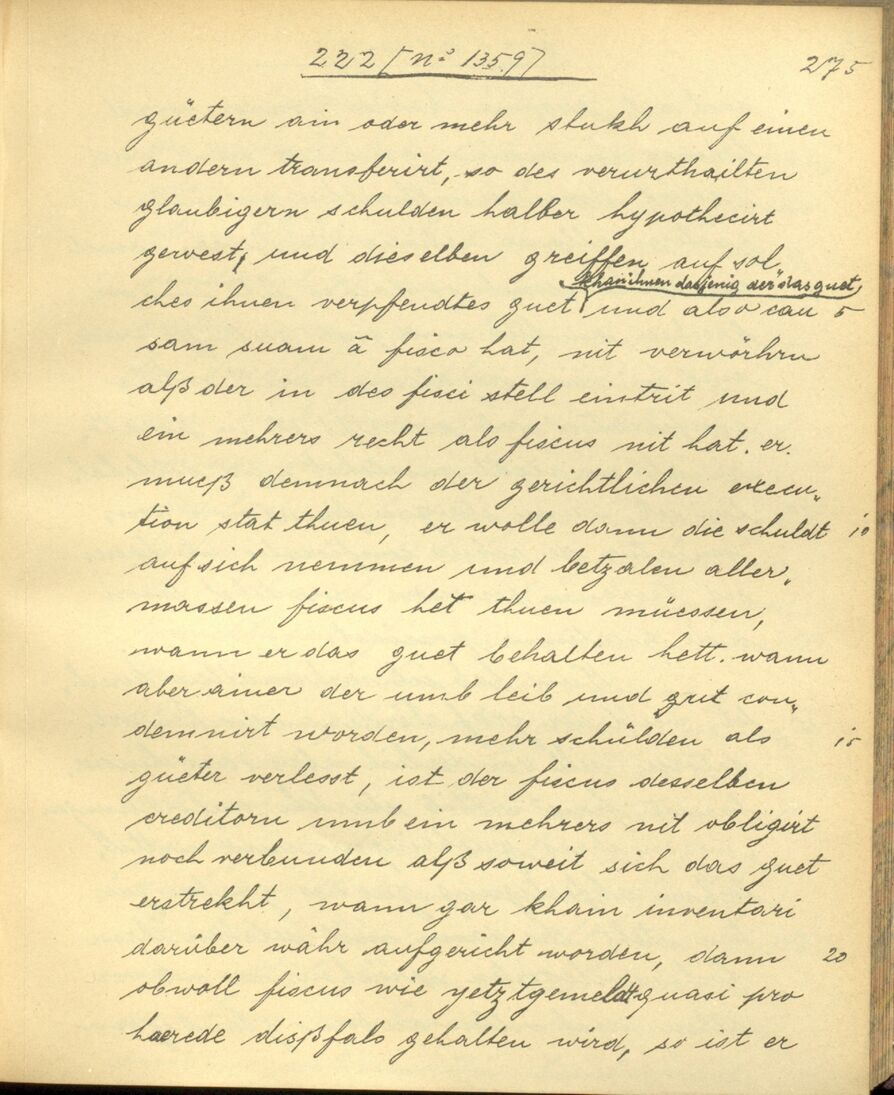 222 [No 1359]
275
güetern ain oder mehr stukh auf einen
andern transferirt, so des verurthailten
glaubigern schulden halber hypothecirt
gewest, und dieselben greiffen auf sol
khan ihnen dasjenig der "das guet
ches ihnen verpfendtes guet und also cau 5
sam suam â fisco hat, nit verwörhrn
alß der in des fisci stell eintrit und
ein mehrers recht als fiscus nit hat. er
mueß demnach der gerichtlichen execu„
tion stat thuen, er wolle dann die schuldt 10
auf sich nemmen und betzalen aller„
massen fiscus het thuen müessen,
wann er das guet behalten hett. wann
aber ainer der umb leib und guet con„
demnirt worden, mehr schülden als 15
güeter verlesst, ist der fiscus desselben
creditorn umb ein mehrers nit obligirt
noch verbunden alß soweit sich das guet
erstrekht, wann gar khain inventari
darüber währ aufgericht worden, dann 20
obwoll fiscus wie yetztgemeldt quasi pro
haerede dißfals gehalten wird, so ist er